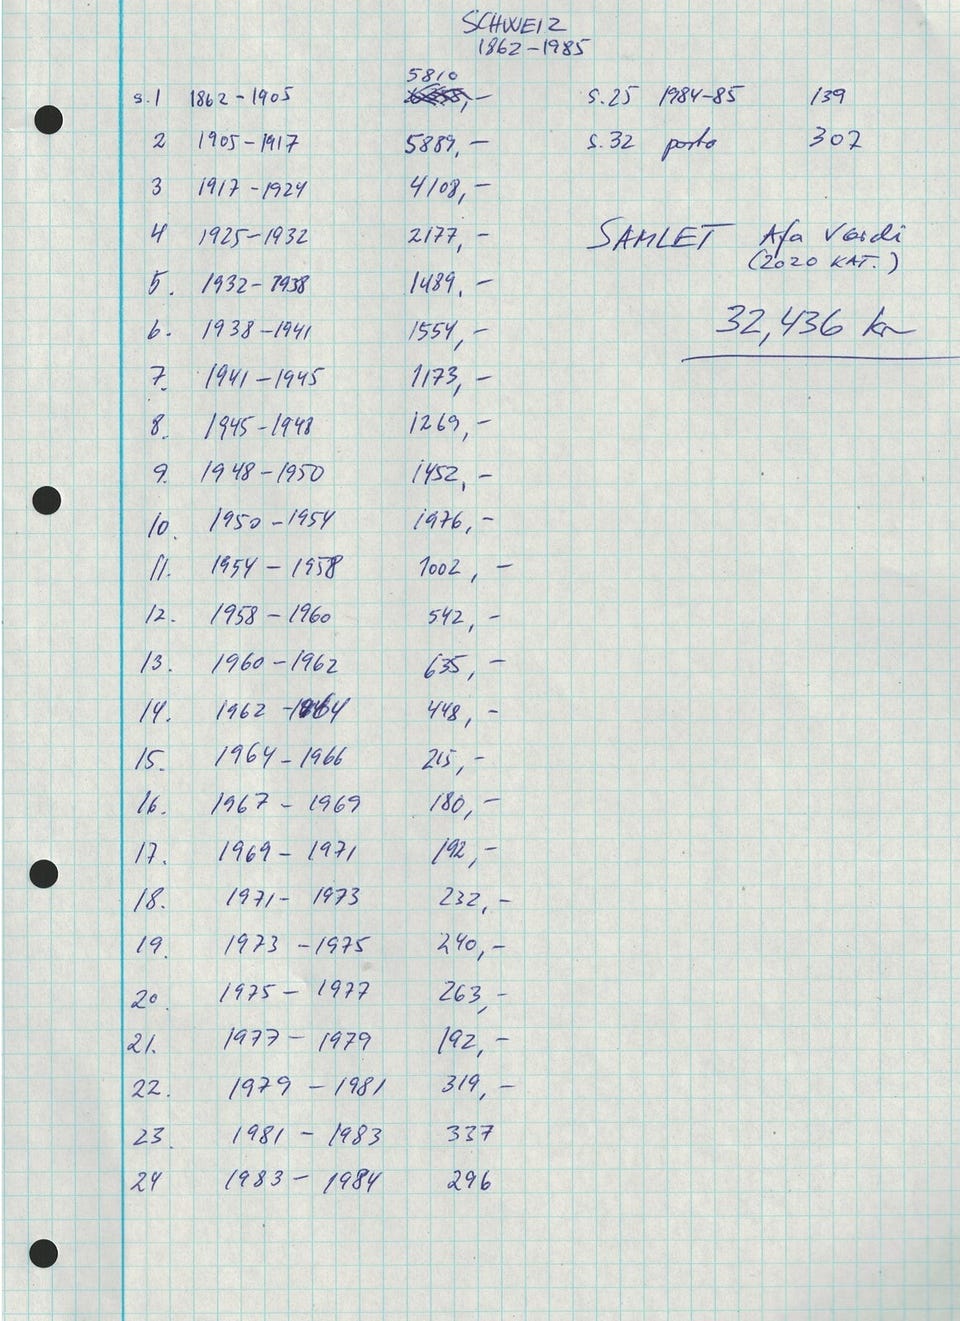 SCHWEIZ
1862-1985
5810
s.1 1862-1905 ,-
2 1905-1917 5889,-
3 1917-1924 4108,-
4 1925-1932 2177,-
5. 1932-1938 1489,-
6. 1938-1941 1554,-
7. 1941-1945 1173,-
8. 1945-1948 1269,-
9. 1948-1950 1452,-
10. 1950-1954 1976,-
11. 1954-1958 1002,-
12. 1958-1960 542,-
13. 1960-1962 635,-
14. 1962-1964 448,-
15. 1964-1966 215,-
16. 1967-1969 180,-
17. 1969-1971 192,-
18. 1971-1973 232,-
19. 1973-1975 240,-
20. 1975-1977 263,-
21. 1977-1979 192,-
22. 1979-1981 319,-
23. 1981-1983 337
24 1983-1984 296
s.25 1984-85 139
s.32 porto 307
SAMLET Afa Værdi
(2020 KAT.)
32,436 kr